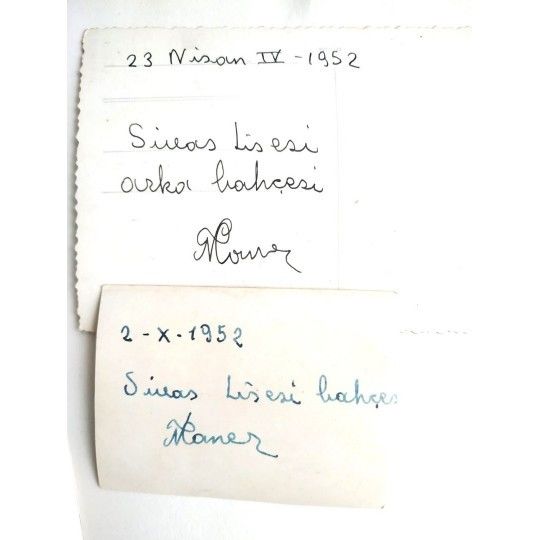 23 Nisan IV - 1952
Sivas Lisesi
arka bahçesi
2 - X - 1952
Sivas Lisesi bahçes